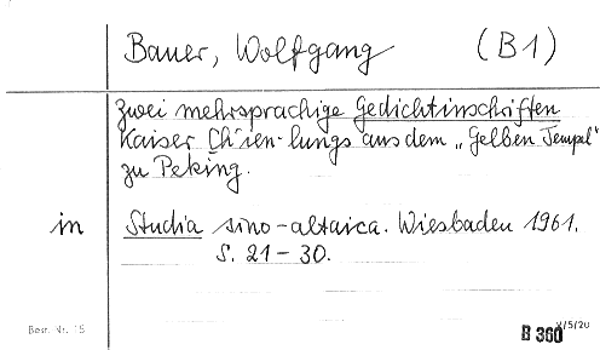 Bauer, Wolfgang (B1)
Zwei mehrsprachige Gedichtinschriften
Kaiser Ch'ien-lungs aus dem „Gelben Tempel“
zu Peking.
in Studia sino-altaica. Wiesbaden 1961.
S. 21-30.
Best. Nr. 15
B 360 V/5/20